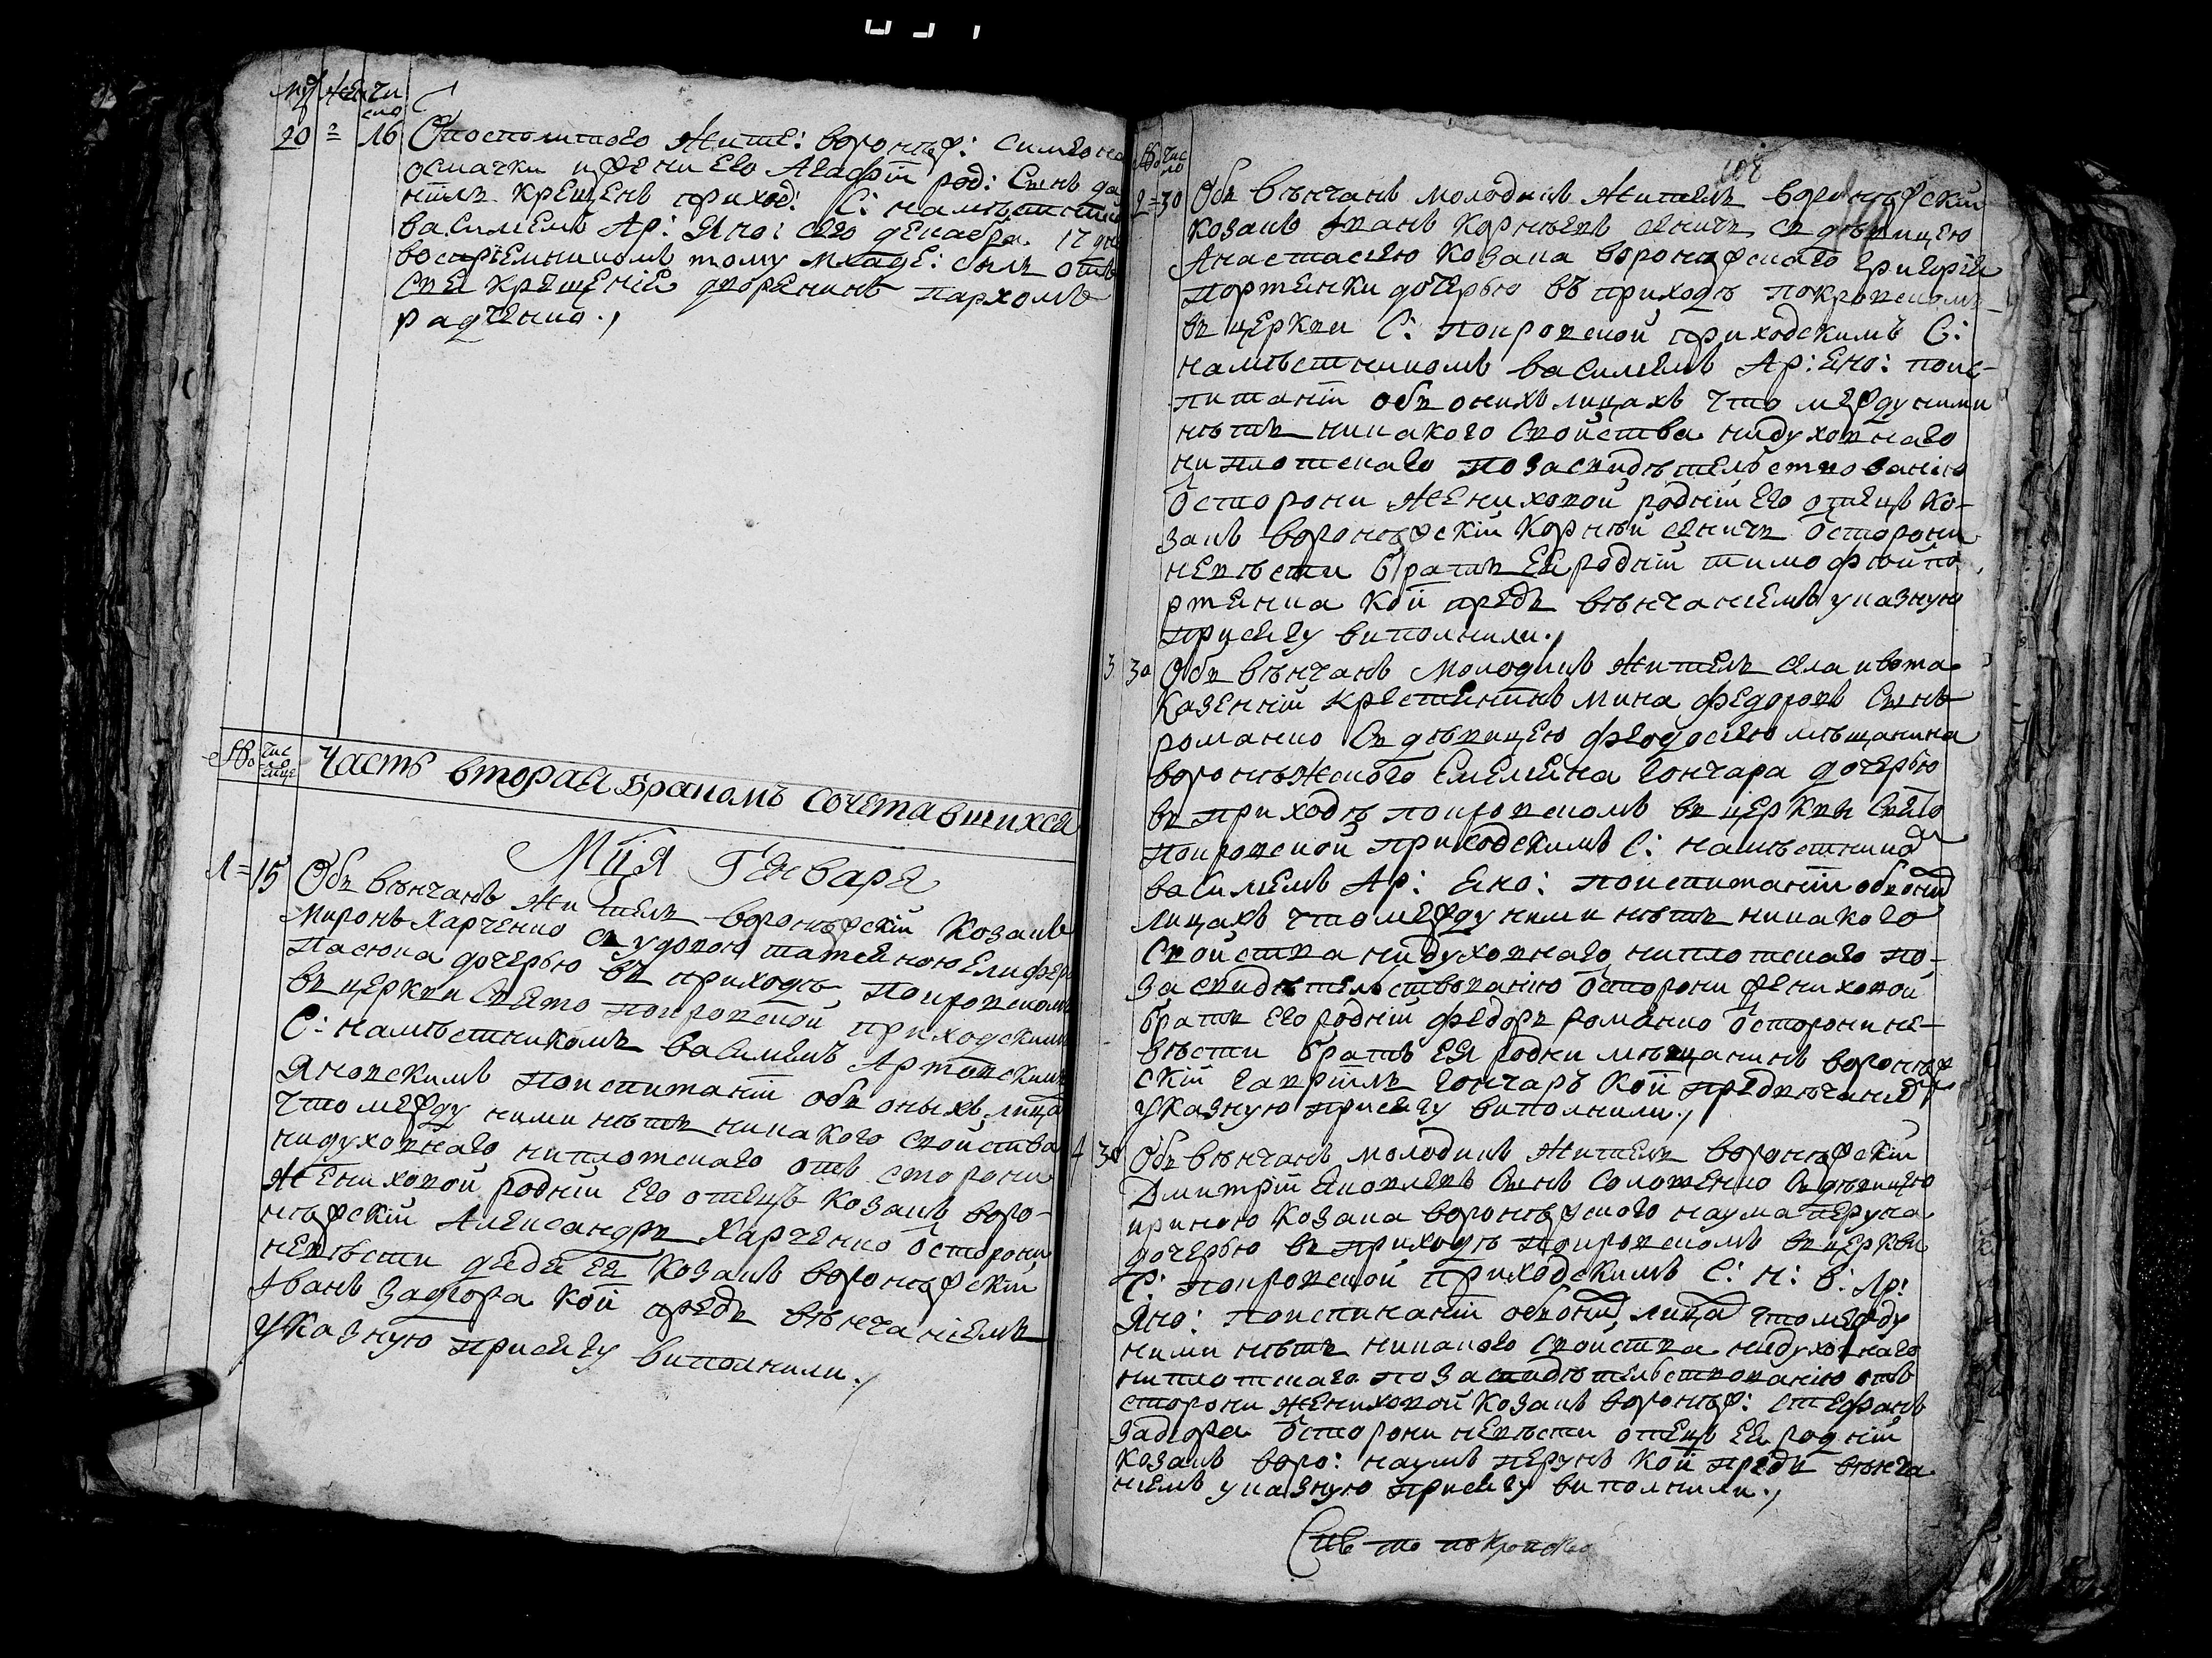 муж жен чи
сло
20 = 16 Упосполитого жите: воронѣж: симеона
осмачки ижени его Агафіи род: Сынъ да
ніилъ крещенъ приход: С: намѣстник
василиемъ Ар: Яно: сего декабра 17 дня
воспріемникомъ тому младе: былъ отъ
свя крещенія дворенинъ пархомъ
радченко.,
№ чис
ло
Часть вторая бракомъ сочетавшихся
Мца Генваря
1 = 15 Обвѣнчанъ житель воронѣжскій козакъ
миронъ харченко съ удовою татяною Елифер
пасюка дочерью въ приходѣ покровскомъ
въ церкви свято покровской приходскимъ
С: намѣстникомъ василиемъ Артовскимъ
Яновскимъ поиспитаніи объ оныхъ лица
что между ними нѣтъ никакого свойства
нидуховнаго ниплотскаго отъ сторони
жениховой родній его отецъ козакъ воро-
нѣжскій Александръ харченко ѿсторони
невѣсти дядя ея козакъ воронѣжскій
Іванъ задгора кои предъ вѣнчаніемъ
указную присягу виполнили.,
108
№ чис
ло
2 = 30 Обвѣнчанъ молодикъ житель воронѣжскій
козакъ Іванъ корнѣевъ сѣничъ съ дѣвицею
Анастасіею козака воронѣжскаго григорія
портянки дочерью въ приходѣ покровскомъ
въ церкви С: покровской приходскимъ С:
намѣстникомъ василиемъ Ар: Яно: поис-
питаніи объ онихъ лицахъ что между ними
нѣтъ никакого свойства нидуховнаго
ниплотскаго позасвидѣтельствованію
ѿсторони жениховой родній его отецъ ко-
закъ воронѣжскій корнѣй сѣничъ ѿсторони
невѣсти братъ ея родній тимофѣй по
ртянка кои предъ вѣнчаніемъ указную
присягу виполнили.,
3 30 Обвѣнчанъ молодикъ житель села ивота
казенній крестянинъ мина федоровъ сынъ
романко съ дѣвицею феодосіею мѣщанина
воронѣжскаго Емеляна гончара дочерью
въ приходѣ покровскомъ въ церкви свято
покровской приходскимъ С: намѣстнико
василиемъ Ар: Яно: поиспитаніи объони
лицахъ что между ними нѣтъ никакого
свойства нидуховнаго ниплотскаго по-
засвидѣтельствованію ѿсторони жениховой
братъ его родній федоръ романко ѿсторони не-
вѣсти братъ ея родни мѣщанинъ воронѣж
скій гавріилъ гончаръ кои предвѣнчаніе
указную присягу виполнили.,
4 30 Обвѣнчанъ молодикъ житель воронѣжскій
Дмитрій Яковлевъ сынъ соложенко съ дѣвицею
ириною козака воронѣжскаго наума перуна
дочерью въ приходѣ покровскомъ въ церкви
С: покровской приходскимъ С: н: в: Ар:
Яно: поиспитаніи объони лица что между
ними нѣтъ никакого свойства нидуховнаго
ниплотскаго позасвидѣтельствованію отъ
сторони жениховой козакъ воронѣж: стефанъ
задгора ѿсторони невѣсти отецъ ея родній
козакъ воро: наумъ перунъ кои предъ вѣнча
ніемъ указную присягу виполнили.,